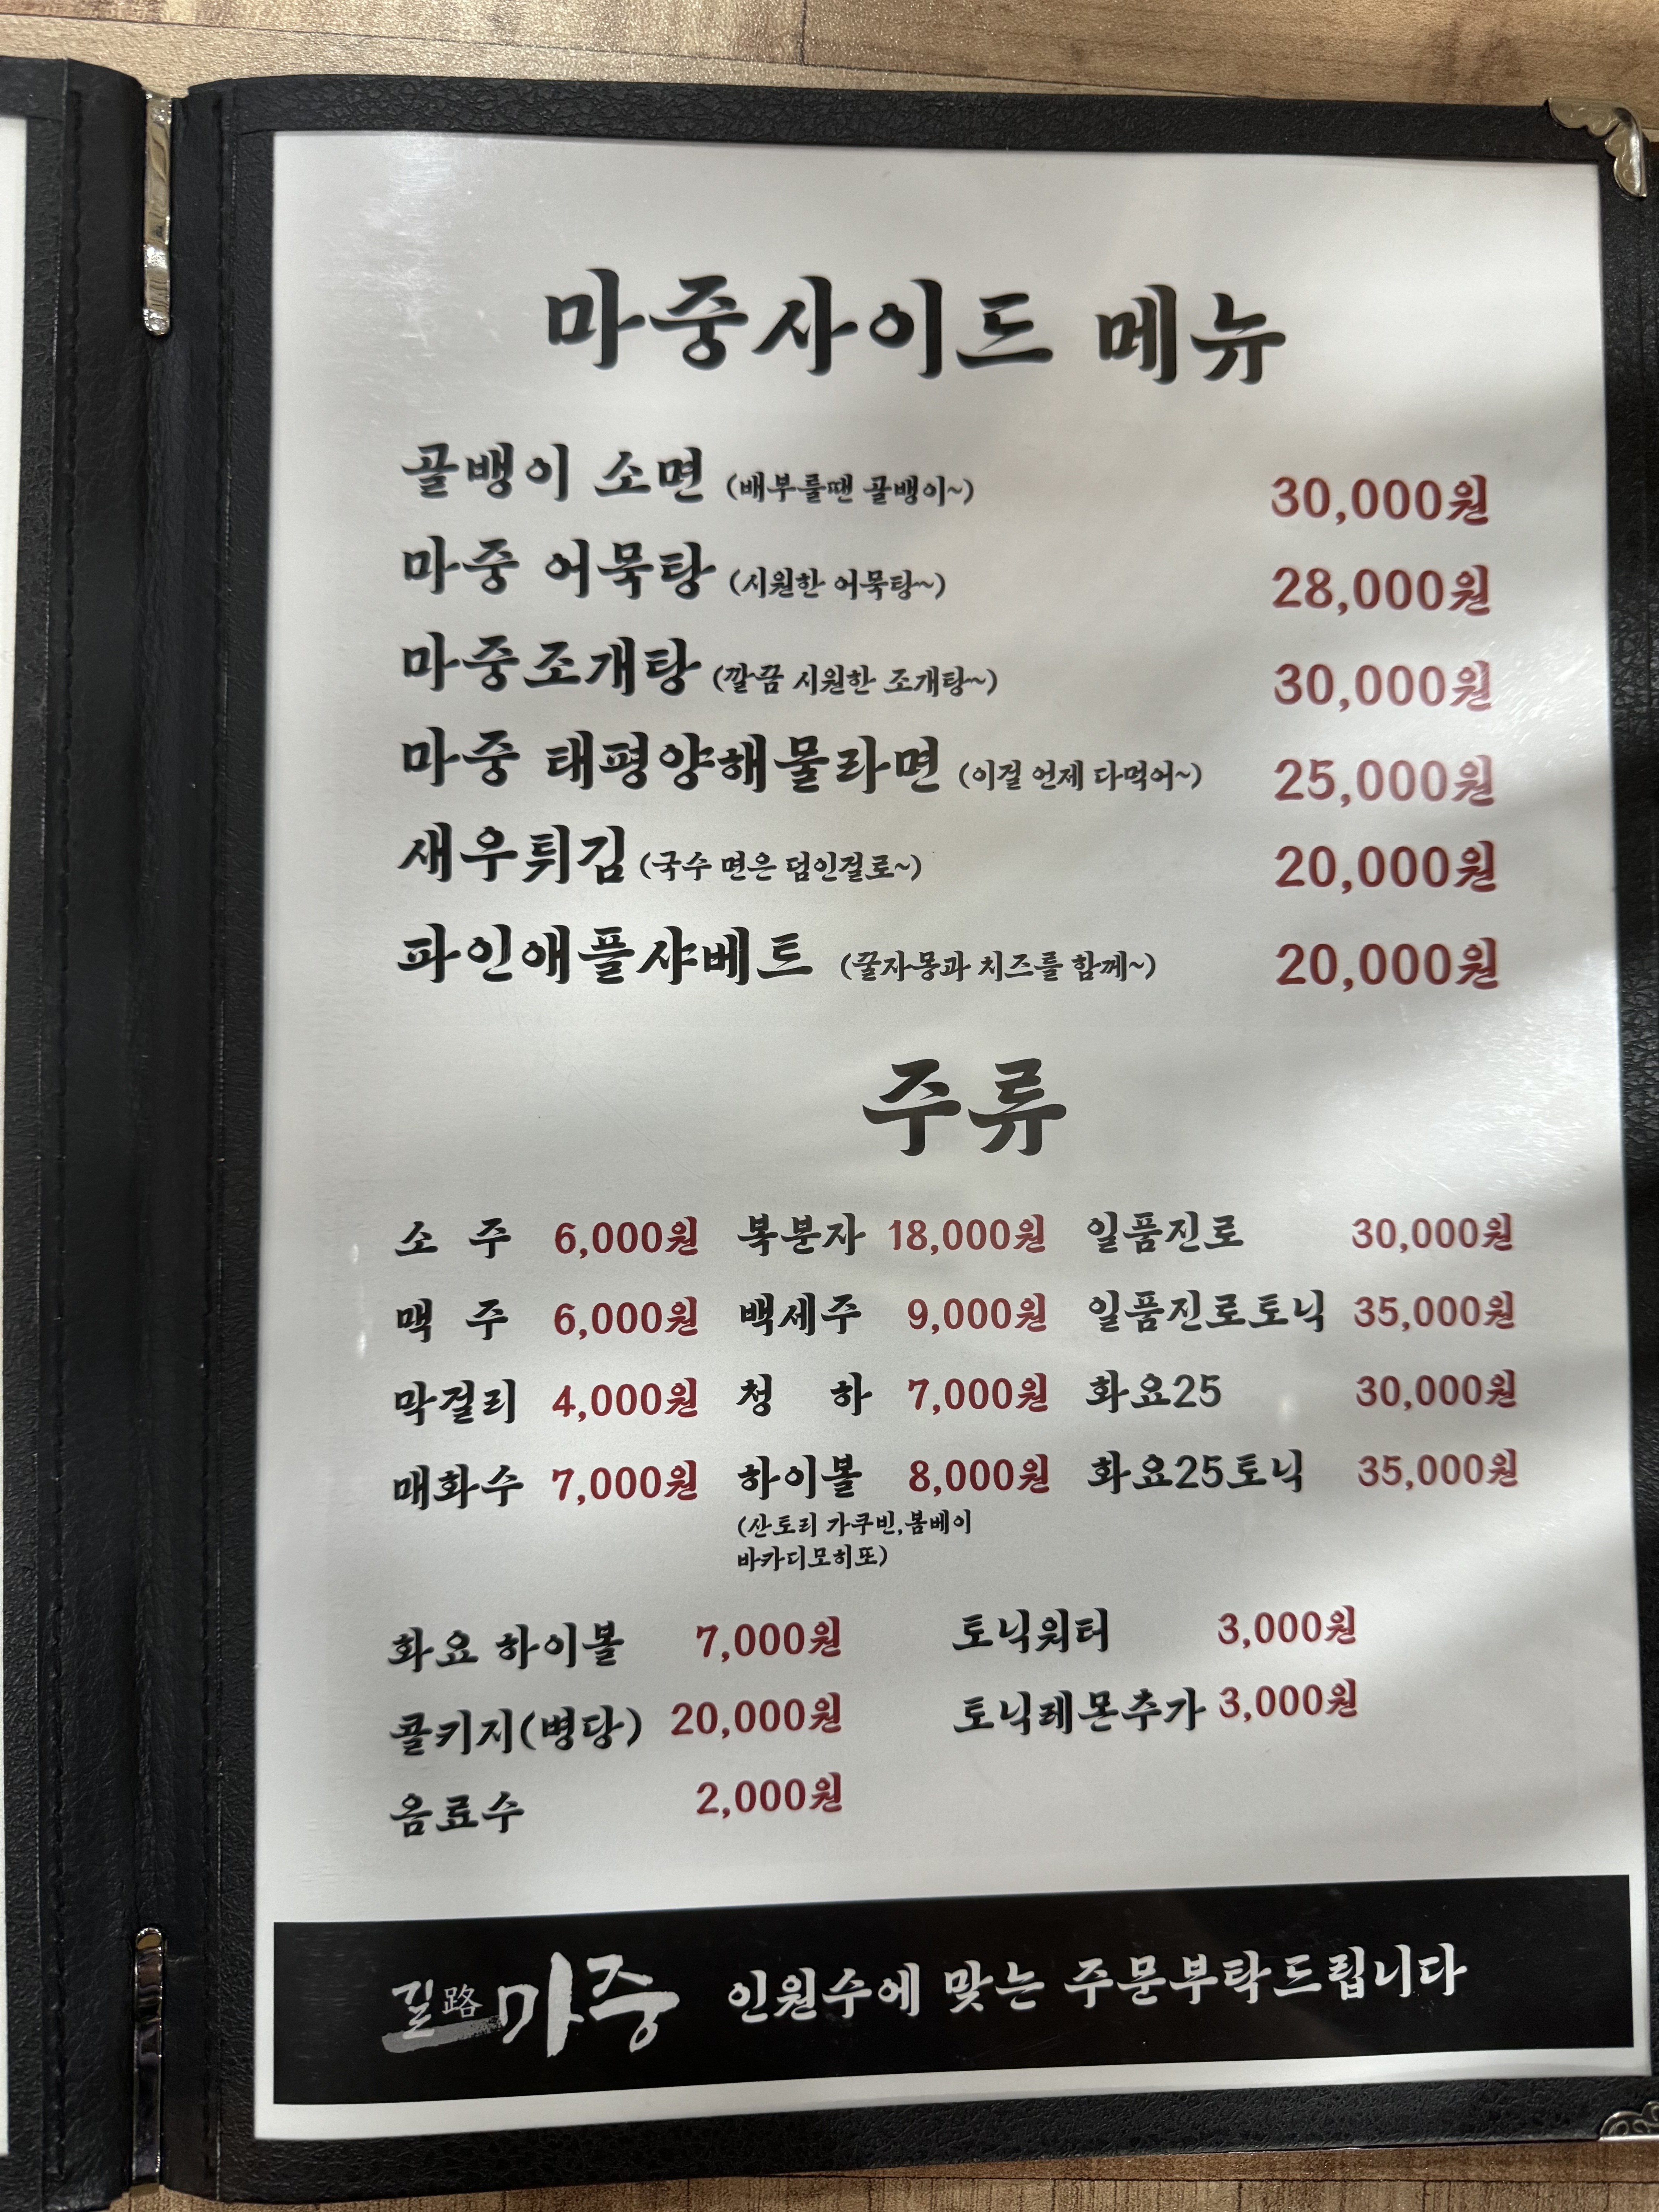 마중사이드 메뉴
골뱅이 소면 (배부를땐 골뱅이~) 30,000원
마중 어묵탕 (시원한 어묵탕~) 28,000원
마중조개탕 (깔끔 시원한 조개탕~) 30,000원
마중 태평양해물라면 (이걸 언제 다먹어~) 25,000원
새우튀김 (국수 면은 덤인걸로~) 20,000원
파인애플샤베트 (꿀자몽과 치즈를 함께~) 20,000원
주류
소 주 6,000원 복분자 18,000원 일품진로 30,000원
맥 주 6,000원 백세주 9,000원 일품진로토닉 35,000원
막걸리 4,000원 청 하 7,000원 화요25 30,000원
매화수 7,000원 하이볼 8,000원 화요25토닉 35,000원
(산토리 가쿠빈,봄베이
바카디모히또)
화요 하이볼 7,000원 토닉워터 3,000원
콜키지(병당) 20,000원 토닉레몬추가 3,000원
음료수 2,000원
길路마중 인원수에 맞는 주문부탁드립니다